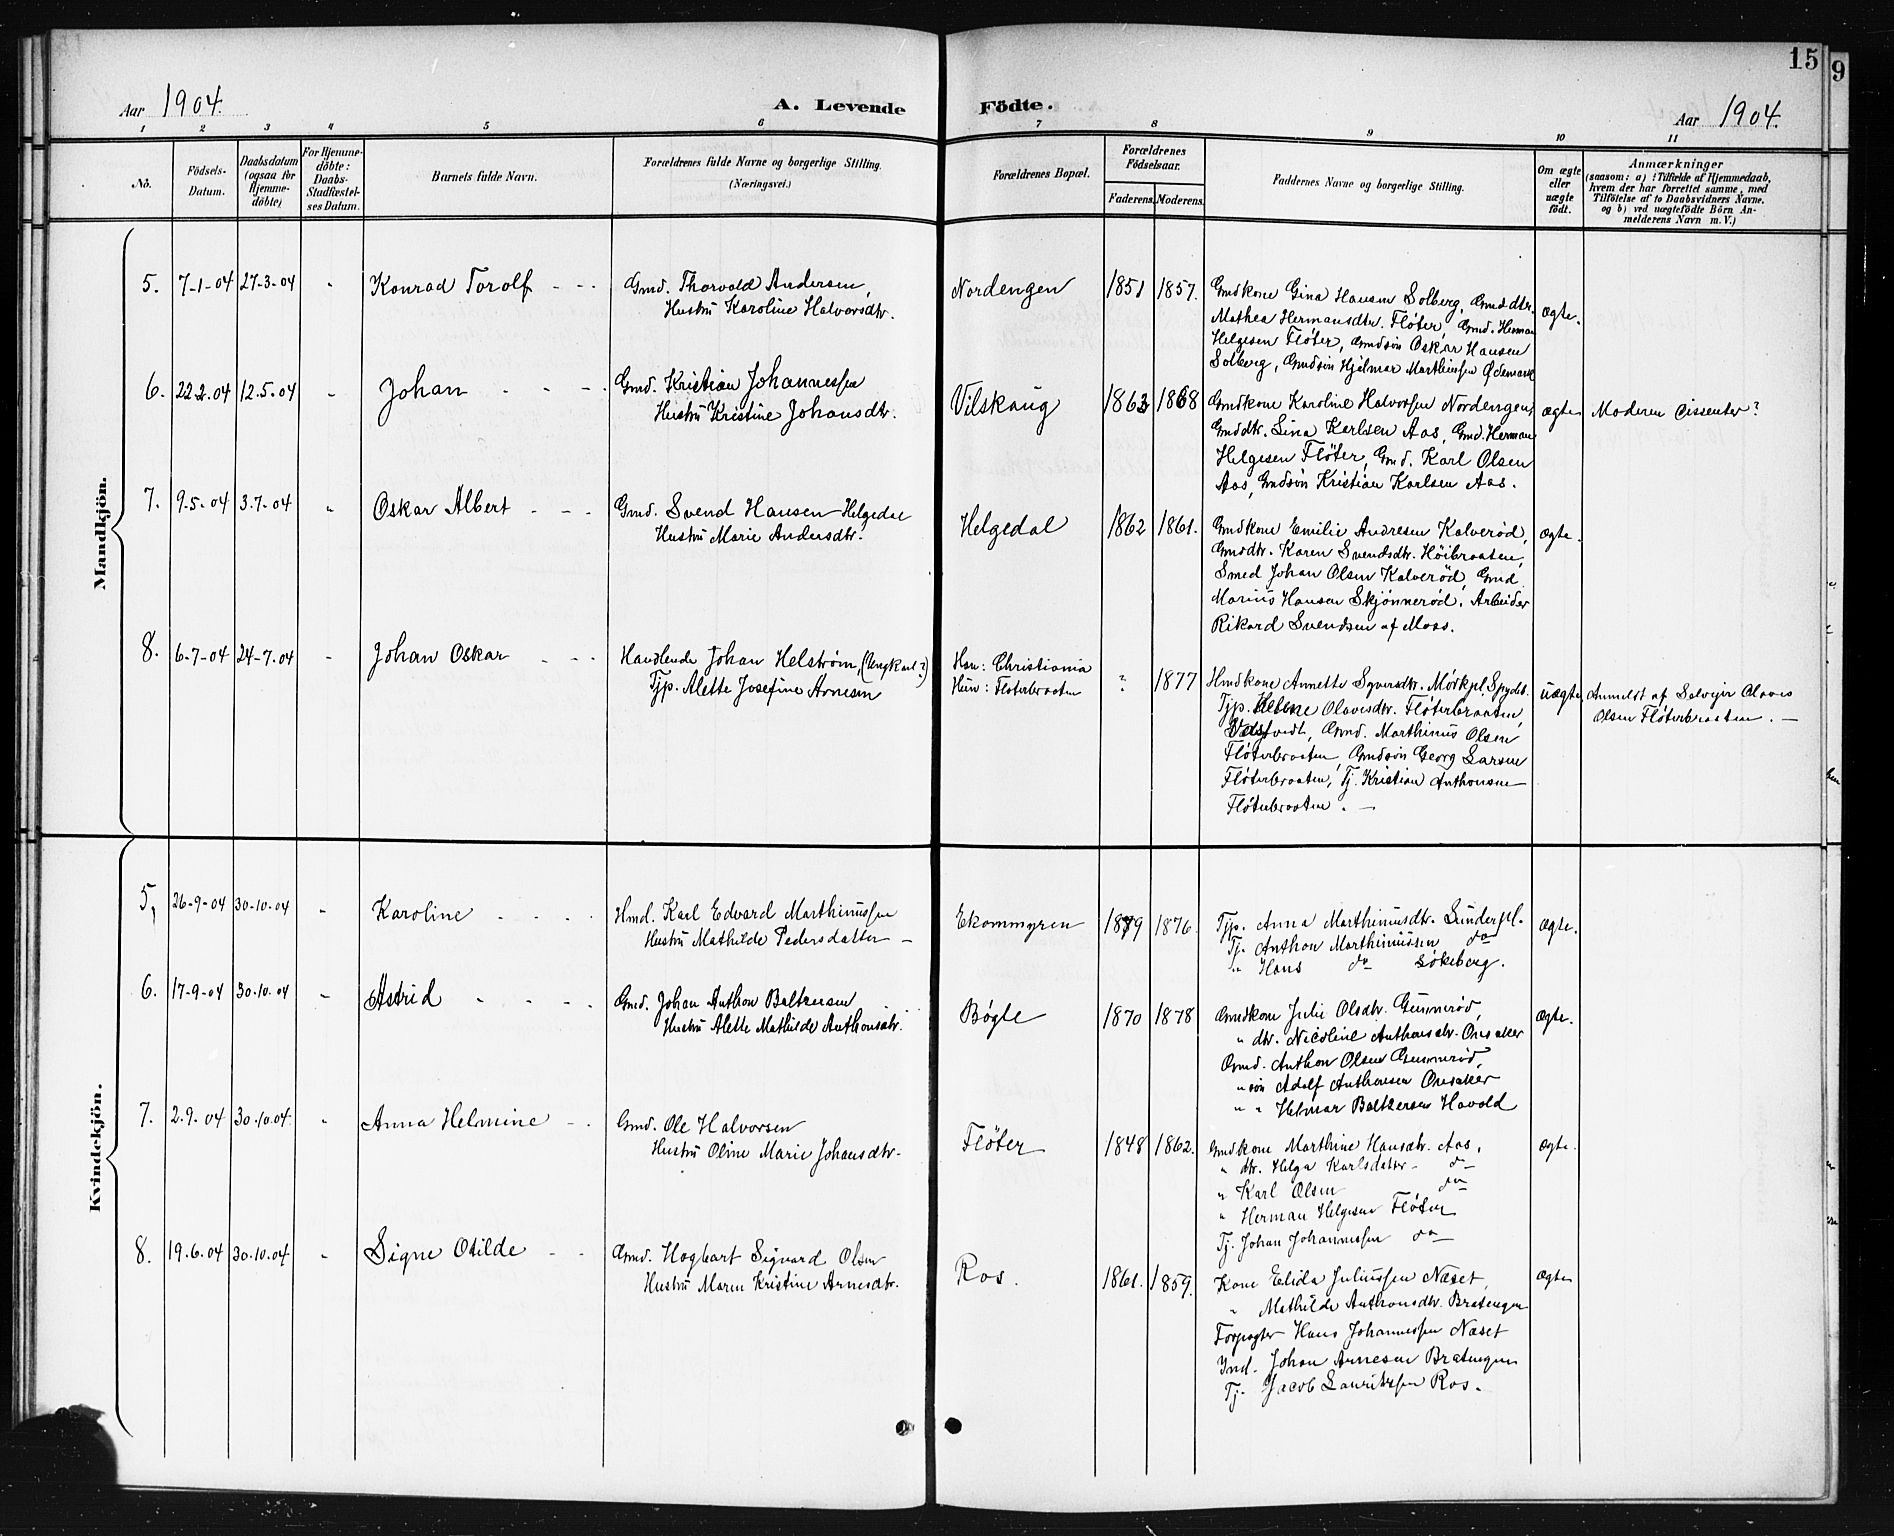 15
9
Aar 1904.
A. Levende Födte.
Aar 1904.
1 2 3 4 5 6 7 8 9 10 11
No.
Födsels-Datum.
Daabsdatum (ogsaa for Hjemme-döbte)
For Hjemme-döbte: Daabs-Stadfæstel-ses Datum.
Barnets fulde Navn.
Forældrenes fulde Navne og borgerlige Stilling. (Næringsvei.)
Forældrenes Bopæl.
Forældrenes Födselsaar.
Faderens. Moderens.
Faddernes Navne og borgerlige Stilling.
Om ægte eller uægte födt.
Anmærkninger
(saasom: a) i Tilfælde af Hjemmedaab,
hvem der har forrettet samme, med
Tilföielse af to Daabsvidners Navne.
og b) ved uægtefödte Börn An-
melderens Navn m. V.)
Mandkjön.
5. 7-1-04 27-3-04 " Konrad Torolf
Gmd. Thorvald Andersen,
Hustru Karoline Halvorsdtr.
Nordengen 1851 1857.
Gmdkone Gina Hansen Solberg, Gmddtr.
Mathea Hermansdtr. Fløter, Gmd. Herman
Helgesen Fløter, Gmdsön Oskar Hansen
Solberg, Gmdsön Hjalmar Marthinsen Ødemark
ægte.
6. 22.2.04 12.5.04 " Johan
Gmd. Kristian Johannessen
Hustru Kristine Johansdtr.
Vilskaug 1863 1868
Gmdkone Karoline Halvorsen Nordengen,
Gmddtr. Lina Karlsen Aas, Gmd. Herman
Helgesen Fløter, Gmd. Karl Olsen
Aas, Gmdsön Kristian Karlsen Aas.
ægte
Moderen Dissenter?
7. 9-5-04 3.7-04 " Oskar Albert
Gmd. Svend Hansen Helgedal
Hustru Marie Andersdtr.
Helgedal 1862 1861.
Gmdkone Emilie Andresen Kalverød,
Gmddtr. Karen Svendsdtr. Höibraaten,
Smed Johan Olsen Kalverød, Gmd.
Marius Hansen Skjønnerød, Arbeider
Rikard Svendsen af Moss.
ægte.
8. 6-7-04 24-7-04 " Johan Oskar
Handlende Johan Helstrøm, (Ungkarl?)
Tjp. Alette Josefine Arnesen
Han: Christiania
Hun: Fløterbraaten
? 1877
Hmdkone Annette Syversdtr. Mörkpl. Spydeb.
Tjp. Helene Olavesdtr. Fløterbraaten,
Gmd. Marthinus Olsen
Fløterbraaten, Gmdsön Georg Larsen
Fløterbraaten, Tj. Kristian Anthonsen
Fløterbraaten. —
uægte
Anmeldt af Selveier Olaves
Olsen Fløterbraaten. —
Kvindekjön.
5, 26-9-04 30-10-04 " Karoline
Hmd. Karl Edvard Marthinussen
Hustru Mathilde Pedersdatter —
Ekornmyren 1879 1876.
Tjp. Anna Marthinusdtr. Sunderpl.
Tj. Anthon Marthinussen do
" Hans do Løkeberg.
ægte.
6. 17-9-04 30-10-04 " Astrid
Gmd. Johan Anthon Baltzersen
Hustru Alette Mathilde Anthonsdtr.
Bøgle 1870 1878
Gmdkone Julie Olsdtr. Gunnerød,
" dtr. Nicoline Anthonsdtr. Onsaker
Gmd. Anthon Olsen Gunnerød,
" sön Adolf Anthonsen Onsaker
" " Helmar Baltzersen Havold
ægte.
7. 2.9.04 30.10.04 " Anna Helmine
Gmd. Ole Halvorsen
Hustru Oline Marie Johansdtr.
Fløter 1848 1862.
Gmdkone Marthine Hansdtr. Aas,
" dtr. Helga Karlsdatter do
" Karl Olsen do
" Herman Helgesen Fløter
Tj. Johan Johannessen do
ægte.
8. 19.6.04 30.10.04 " Signe Otilde
Gmd. Hagbart Sigvard Olsen
Hustru Maren Kristine Arnesdtr.
Ros. 1861. 1859.
Kone Elida Juliussen Næset,
" Mathilde Anthonsdtr. Bratengen
Forpagter Hans Johannessen Næset
Ind. Johan Arnesen Bratengen
Tj. Jacob Lauritzsen Ros.
ægte